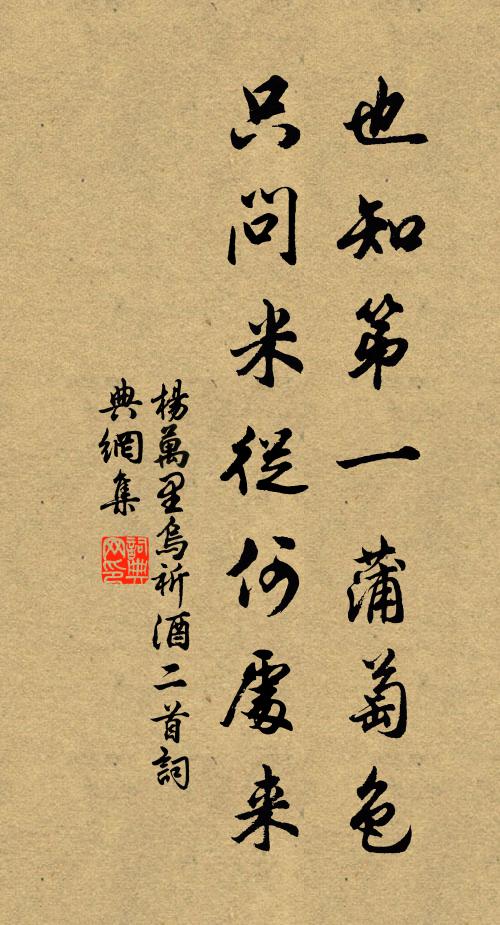 也知第一蒲萄色
只問米從何處来
楊萬里烏祈酒二首詞
典網集
詞典网印